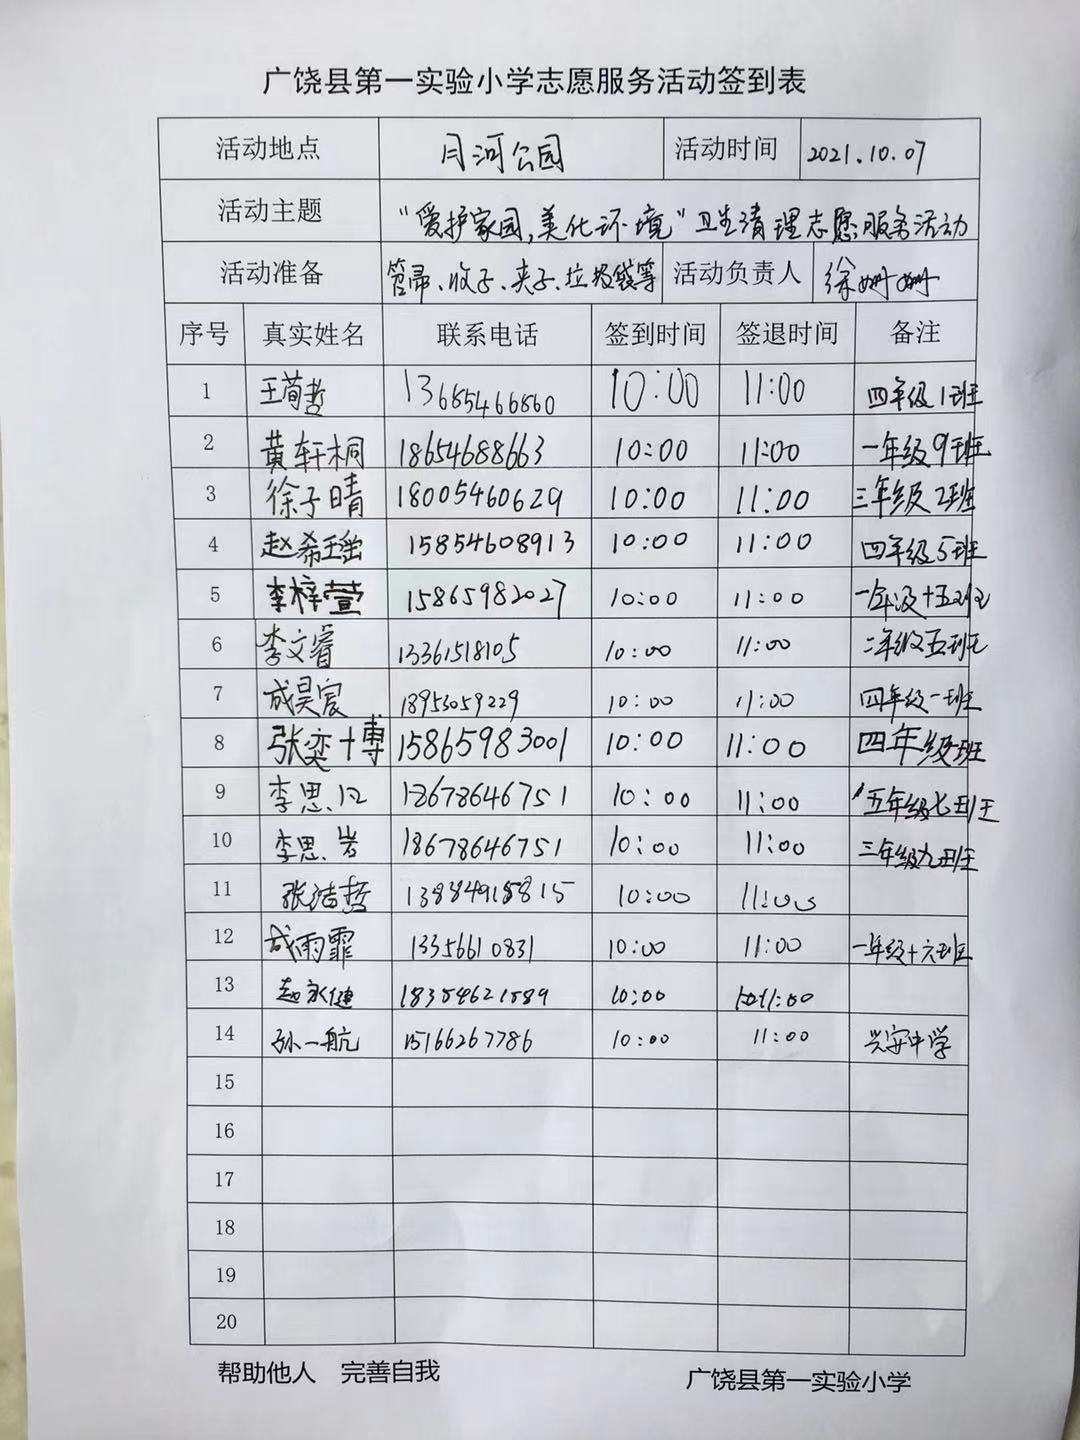 广饶县第一实验小学志愿服务活动签到表
活动地点 月河公园 活动时间 2021.10.07
活动主题 “爱护家园,美化环境”卫生清理志愿服务活动
活动准备 管帚、收子、夹子、垃圾袋等 活动负责人 徐姗姗
序号 真实姓名 联系电话 签到时间 签退时间 备注
1 王荀哲 13685466860 10:00 11:00 四年级1班
2 黄轩桐 18654688663 10:00 11:00 一年级9班
3 徐子晴 18005460629 10:00 11:00 三年级2班
4 赵希瑶 15854608913 10:00 11:00 四年级5班
5 李梓萱 15865982027 10:00 11:00 一年级十五班
6 李文睿 13361518105 10:00 11:00 二年级五班
7 成昊宸 18953059229 10:00 11:00 四年级一班
8 张奕博 15865983001 10:00 11:00 四年级班
9 李思 18678646751 10:00 11:00 五年级七班
10 李思岩 18678646751 10:00 11:00 三年级九班
11 张洁哲 10:00 11:00
12 成雨霏 13356610831 10:00 11:00 一年级十六班
13 赵永健 18354621589 10:00 11:00
14 孙一航 15166267786 10:00 11:00 兴安中学
15
16
17
18
19
20
帮助他人 完善自我 广饶县第一实验小学